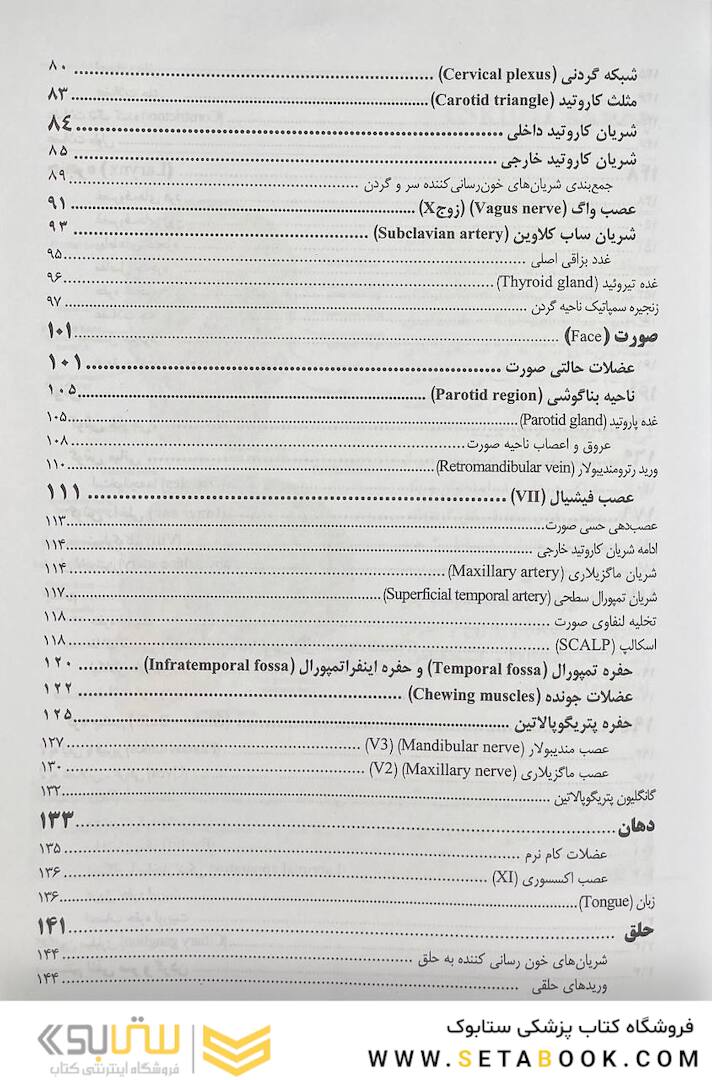 شبکه گردنی (Cervical plexus) ........ ۸۰
مثلث کاروتید (Carotid triangle) ........ ۸۳
شریان کاروتید داخلی ........ ۸۴
شریان کاروتید خارجی ........ ۸۵
جمع‌بندی شریان‌های خون‌رسانی‌کننده سر و گردن ........ ۸۹
عصب واگ (Vagus nerve) (زوج X) ........ ۹۱
شریان ساب کلاوین (Subclavian artery) ........ ۹۳
غدد بزاقی اصلی ........ ۹۵
غده تیروئید (Thyroid gland) ........ ۹۶
زنجیره سمپاتیک ناحیه گردن ........ ۹۷
صورت (Face) ........ ۱۰۱
عضلات حالتی صورت ........ ۱۰۱
ناحیه بناگوشی (Parotid region) ........ ۱۰۵
غده پاروتید (Parotid gland) ........ ۱۰۵
عروق و اعصاب ناحیه صورت ........ ۱۰۸
ورید رترومندیبولار (Retromandibular vein) ........ ۱۱۰
عصب فیشیال (VII) ........ ۱۱۱
عصب‌دهی حسی صورت ........ ۱۱۳
ادامه شریان کاروتید خارجی ........ ۱۱۴
شریان ماگزیلاری (Maxillary artery) ........ ۱۱۴
شریان تمپورال سطحی (Superficial temporal artery) ........ ۱۱۷
تخلیه لنفاوی صورت ........ ۱۱۸
اسکالپ (SCALP) ........ ۱۱۸
حفره تمپورال (Temporal fossa) و حفره اینفراتمپورال (Infratemporal fossa) ........ ۱۲۰
عضلات جونده (Chewing muscles) ........ ۱۲۲
حفره پتریگوپالاتین ........ ۱۲۵
عصب مندیبولار (Mandibular nerve) (V3) ........ ۱۲۷
عصب ماگزیلاری (Maxillary nerve) (V2) ........ ۱۳۰
گانگلیون پتریگوپالاتین ........ ۱۳۲
دهان ........ ۱۳۳
عضلات کام نرم ........ ۱۳۵
عصب اکسسوری (XI) ........ ۱۳۶
زبان (Tongue) ........ ۱۳۶
حلق ........ ۱۴۱
شریان‌های خون رسانی کننده به حلق ........ ۱۴۴
وریدهای حلقی ........ ۱۴۴
فروشگاه کتاب پزشکی ستابوک
ستابوک
فروشگاه اینترنتی کتاب
WWW.SETABOOK.COM